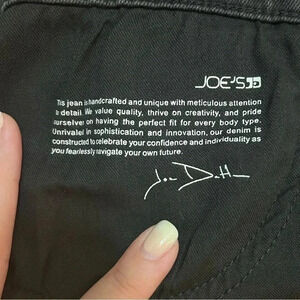 JOE'S
This jean is handcrafted and unique with meticulous attention
to detail. We value quality, thrive on creativity, and pride
ourselves on having the perfect fit for every body type.
Unrivaled in sophistication and innovation, our denim is
constructed to celebrate your confidence and individuality as
you fearlessly navigate your own future.
Joe